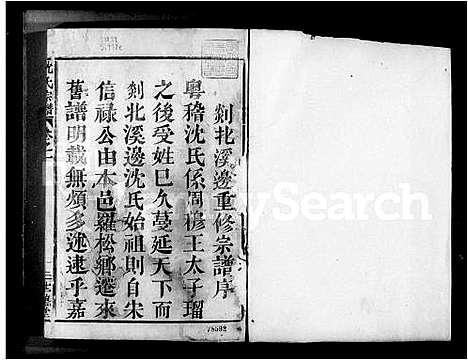 剡北溪邊重修宗譜序
粵稽沈氏係周穆王太子瑠
之後受姓已久蔓延天下而
剡北溪邊沈氏始祖則自朱
信祿公由本邑羅松鄉遷來
舊譜明載無煩多述逮乎嘉
沈氏宗譜
78592
Search